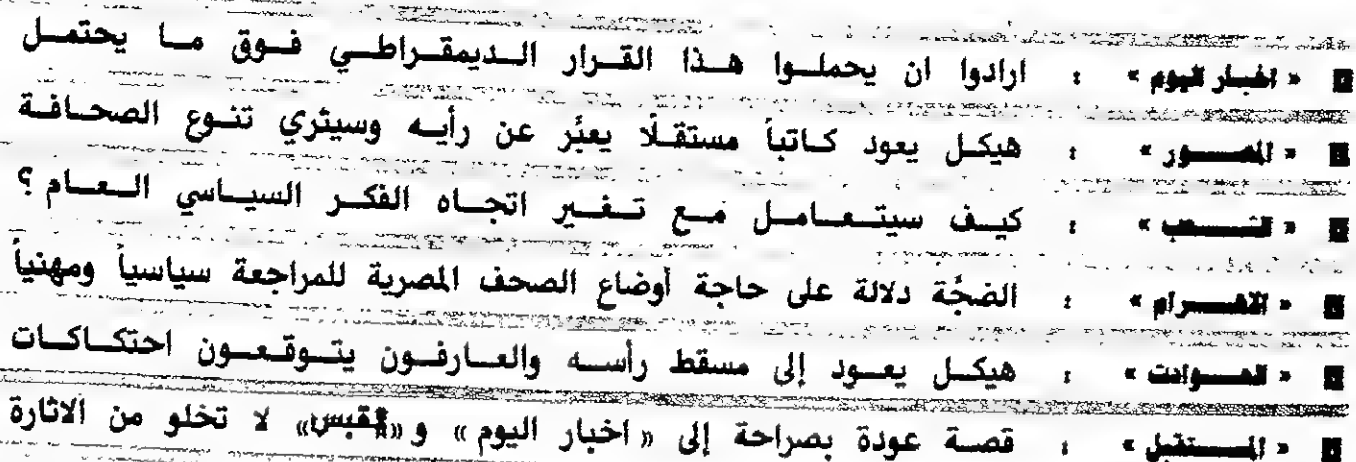 ■ « اخبار اليوم » : ارادوا ان يحملوا هذا القرار الديمقراطي فوق ما يحتمل
■ « المصور » : هيكل يعود كاتباً مستقلًا يعبّر عن رأيه وسيثري تنوع الصحافة
■ « الشعب » : كيف سيتعامل مع تغير اتجاه الفكر السياسي العام ؟
■ « الاهرام » : الضجّة دلالة على حاجة أوضاع الصحف المصرية للمراجعة سياسياً ومهنياً
■ « الحوادث » : هيكل يعود إلى مسقط رأسه والعارفون يتوقعون احتكاكات
■ « المستقبل » : قصة عودة بصراحة إلى « اخبار اليوم » و «القبس» لا تخلو من الاثارة